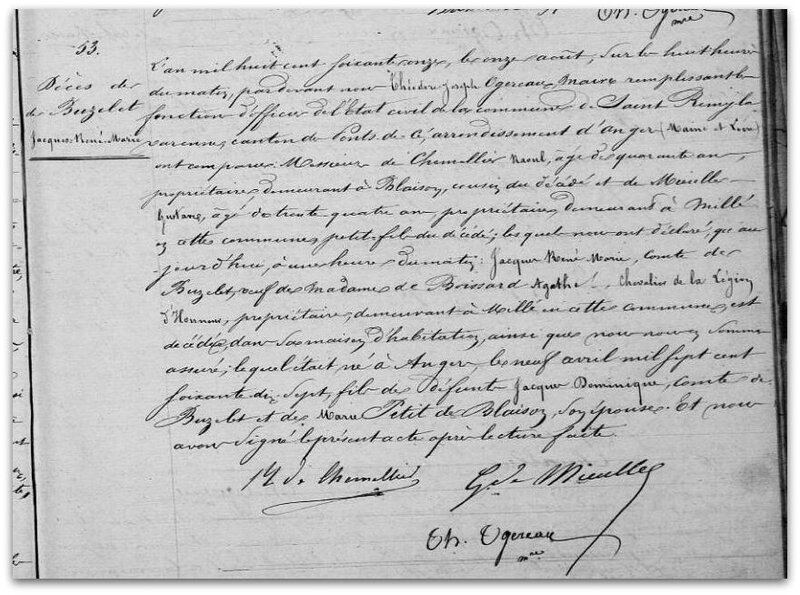 Th. Ogereau
mre
53.
Décès de
de Buzelet
Jacques-René-Marie
L'an mil huit cent soixante onze, le onze août, sur les huit heures
du matin, pardevant nous Théodore Joseph Ogereau, Maire remplissant les
fonction d'officier de l'Etat civil de la commune de Saint Remy la
varenne, canton des Ponts de Cé, arrondissement d'Angers (Maine et Loire)
ont comparu: Messieurs de Chemellier Raoul, âgé de quarante ans,
propriétaire demeurant à Blaison, cousin du décédé et de Mieulle
Gustave, âgé de trente quatre ans, propriétaire, demeurant à Millé
en cette commune, petit-fils du décédé; lesquels nous ont déclaré, que au
jourd'hui, à une heure du matin: Jacques René Marie, comte de
Buzelet, veuf de madame de Boissard Agathe, Chevalier de la Légion
d'Honneur, propriétaire, demeurant à Millé en cette commune, est
décédé, dans sa maison d'habitation, ainsi que nous nous en sommes
assuré; lequel était né à Angers, le neuf avril mil sept cent
soixante dix-sept, fils de défunts Jacques Dominique, comte de
Buzelet et de Marie Petit de Blaison, son épouse. Et nous
avons signé le présent acte après lecture faite.
de Chemellier G. de Mieulle
Th. Ogereau
mre